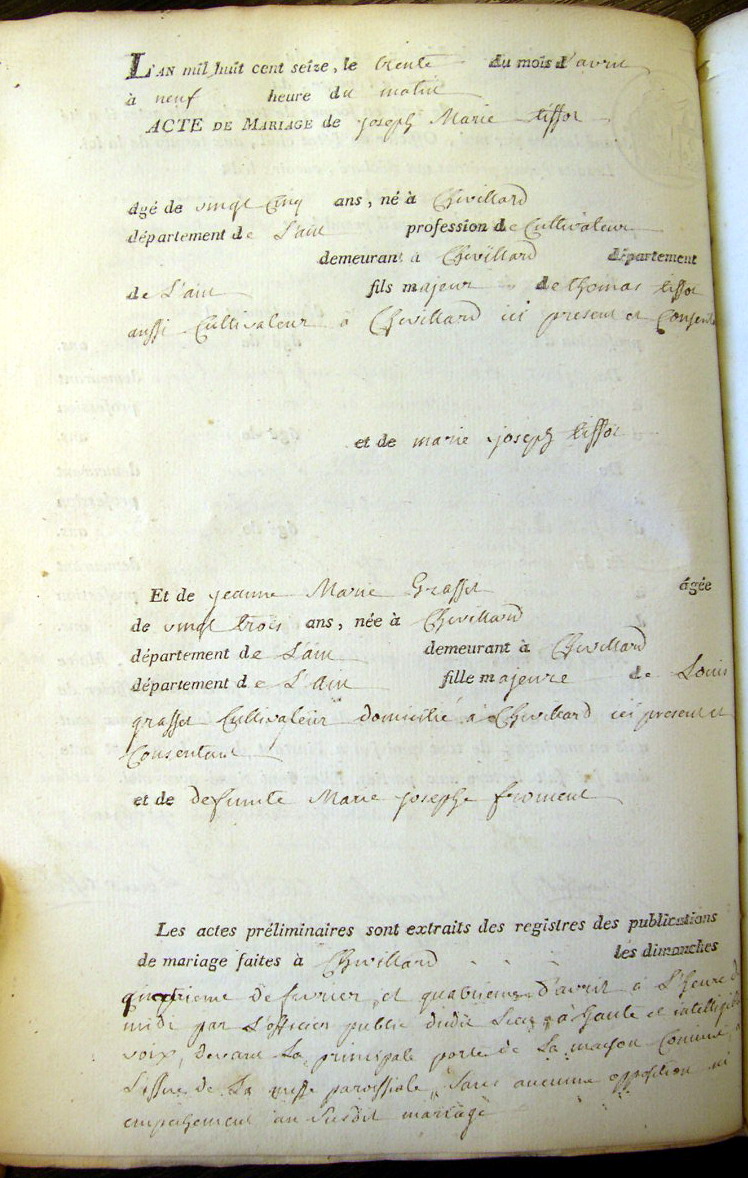 L'AN mil huit cent seize, le trente du mois d'avril
à neuf heure du matin
ACTE DE MARIAGE de joseph Marie tissot
âgé de vingt cinq ans, né à Chevillard
département de L'ain profession de Cultivateur
demeurant à Chevillard département
de L'ain fils majeur de thomas tissot
aussi Cultivateur à Chevillard ici present et Consent
et de marie joseph tissot
Et de jeanne Marie Grasset âgée
de vingt trois ans, née à Chevillard
département de L'ain demeurant à Chevillard
département de L'ain fille majeure de Louis
grasset Cultivateur domicilié à Chevillard ici present et
Consentant
et de defunte Marie josephe froment
Les actes préliminaires sont extraits des registres des publications
de mariage faites à Chevillard les dimanches
de fevrier et quatrieme d'avril à L'heure de
midi par L'officier public dudit Lieu à haute et intelligible
voix, devant La principale porte de La maison Commune, à
L'issue de La messe paroissiale, Sans aucune opposition ni
empechement au Susdit mariage